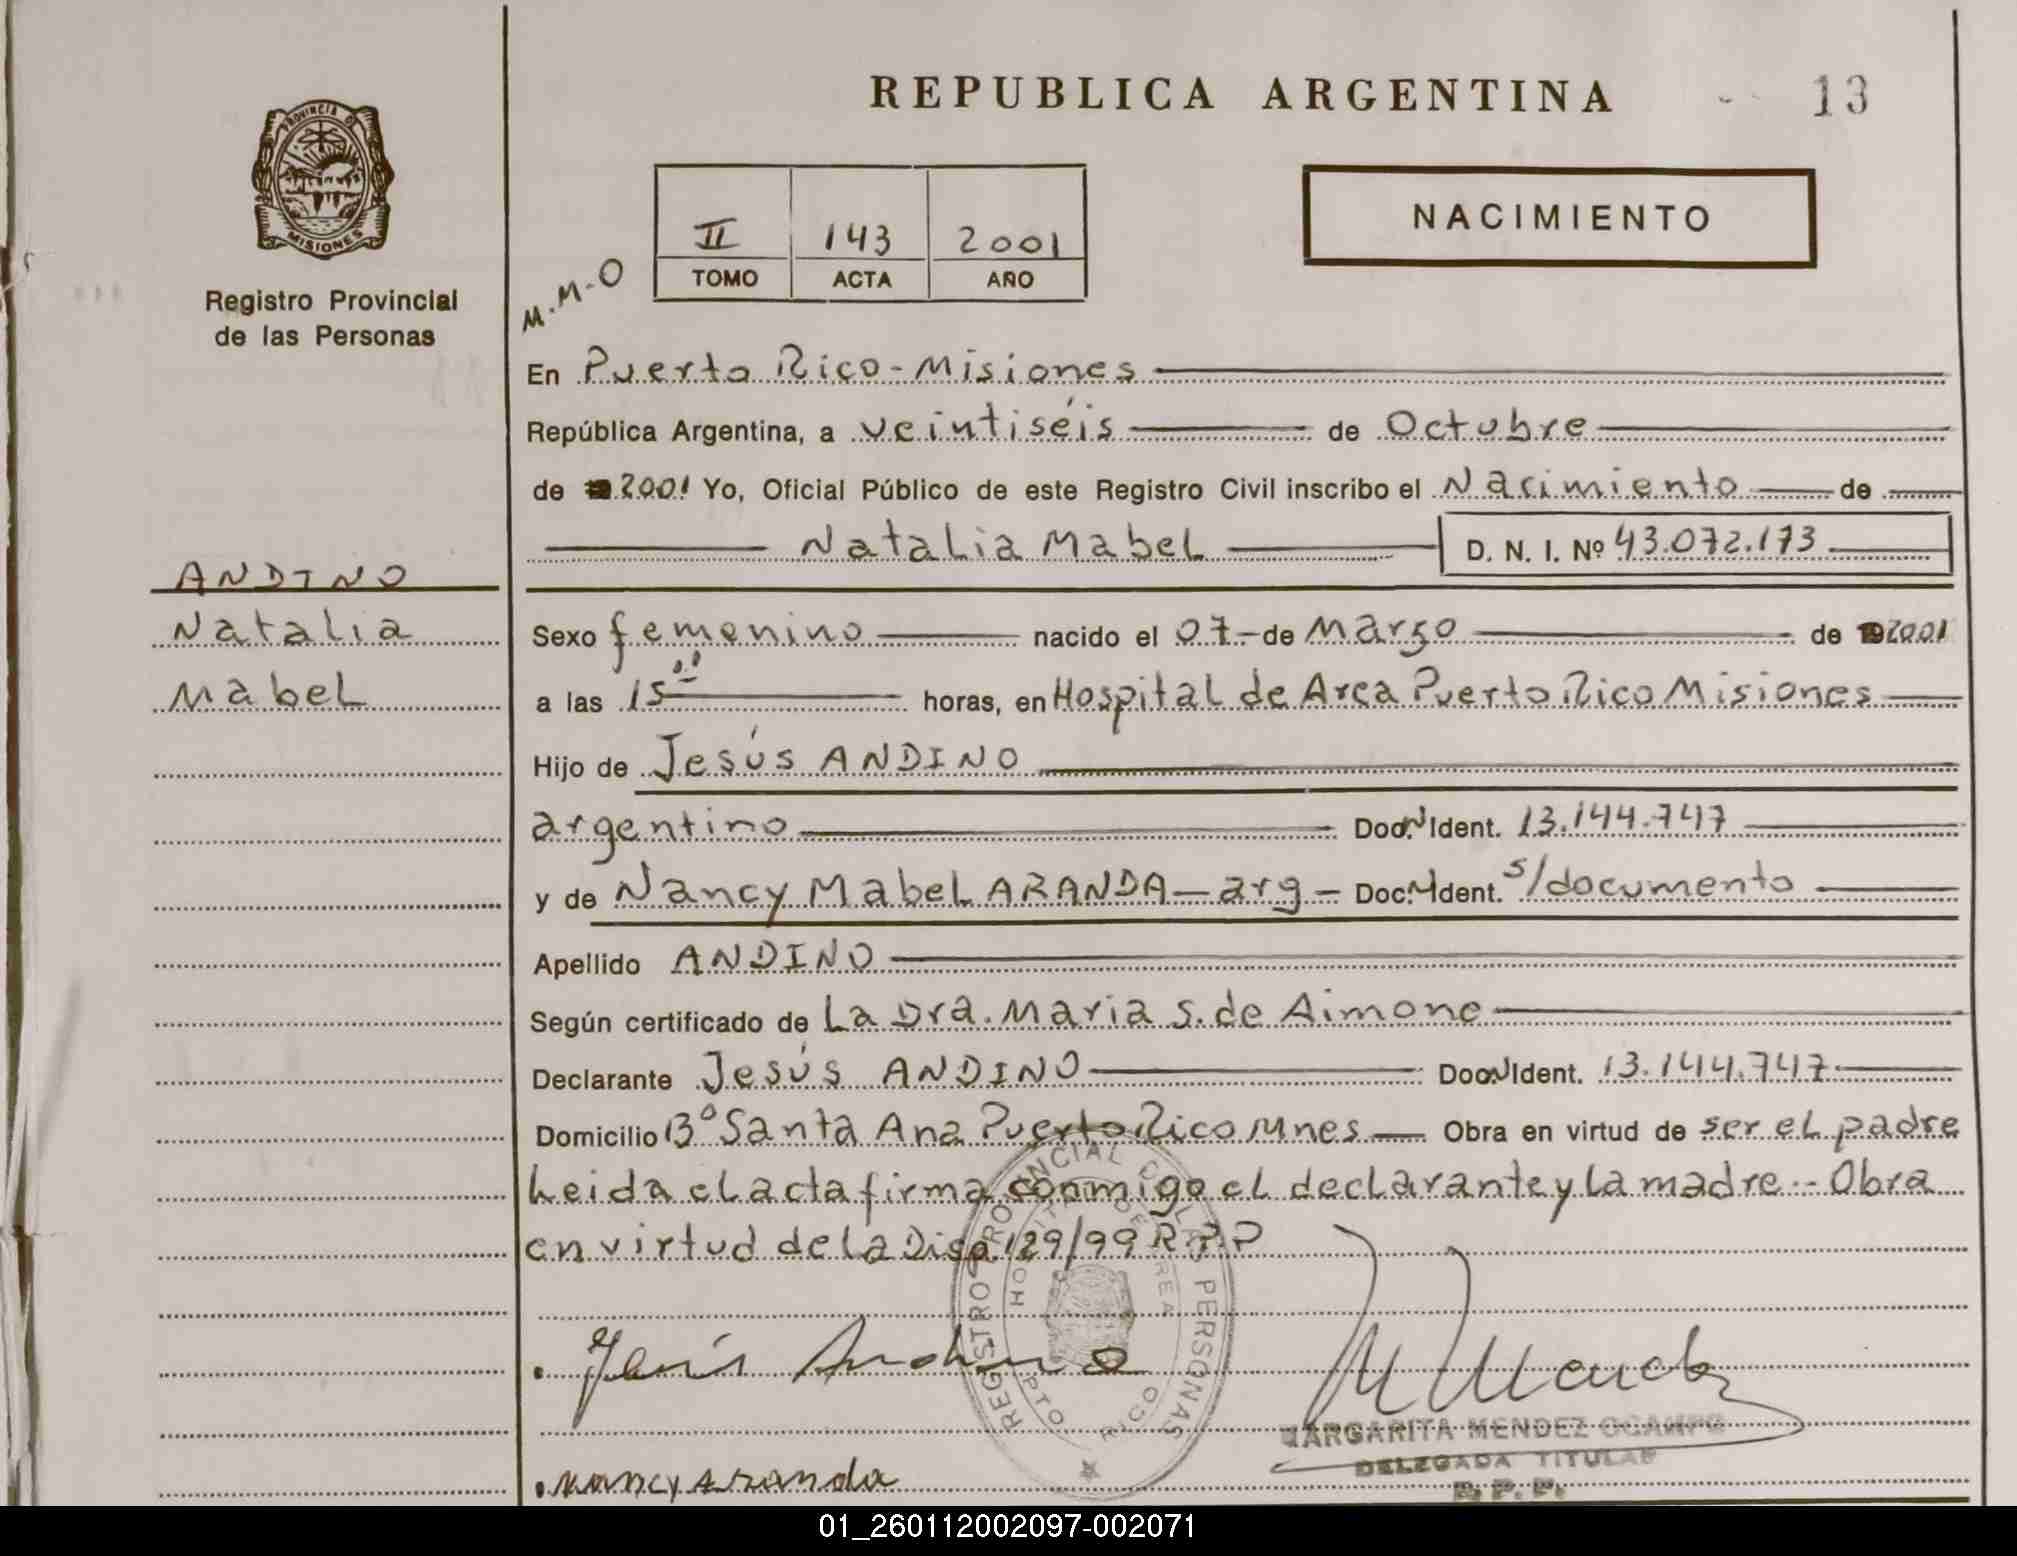 REPUBLICA ARGENTINA
13
PROVINCIA DE
MISIONES
Registro Provincial
de las Personas
II 143 2001
TOMO ACTA AÑO
NACIMIENTO
M.M.O
En Puerto Rico - Misiones
República Argentina, a veintiséis de Octubre
de 2001 Yo, Oficial Público de este Registro Civil inscribo el Nacimiento de
Natalia Mabel D. N. I. Nº 43.072.173
ANDINO
Natalia
Mabel
Sexo femenino nacido el 07 de Marzo de 2001
a las 15 00 horas, en Hospital de Area Puerto Rico Misiones
Hijo de Jesús ANDINO
argentino Doc. Ident. 13.144.747
y de Nancy Mabel ARANDA - arg - Doc. Ident. s/documento
Apellido ANDINO
Según certificado de La Dra. Maria S. de Aimone
Declarante Jesús ANDINO Doc. Ident. 13.144.747
Domicilio Bº Santa Ana Puerto Rico Mnes Obra en virtud de ser el padre
Leida el acta firma conmigo el declarante y la madre.- Obra
en virtud de la Disp. 129/99 R.P.P
REGISTRO PROVINCIAL DE LAS PERSONAS
HOSPITAL DE AREA
PTO RICO
Jesús Andino
MARGARITA MENDEZ OCAMPO
DELEGADA TITULAR
R.P.P.
Nancy Aranda
01_260112002097-002071